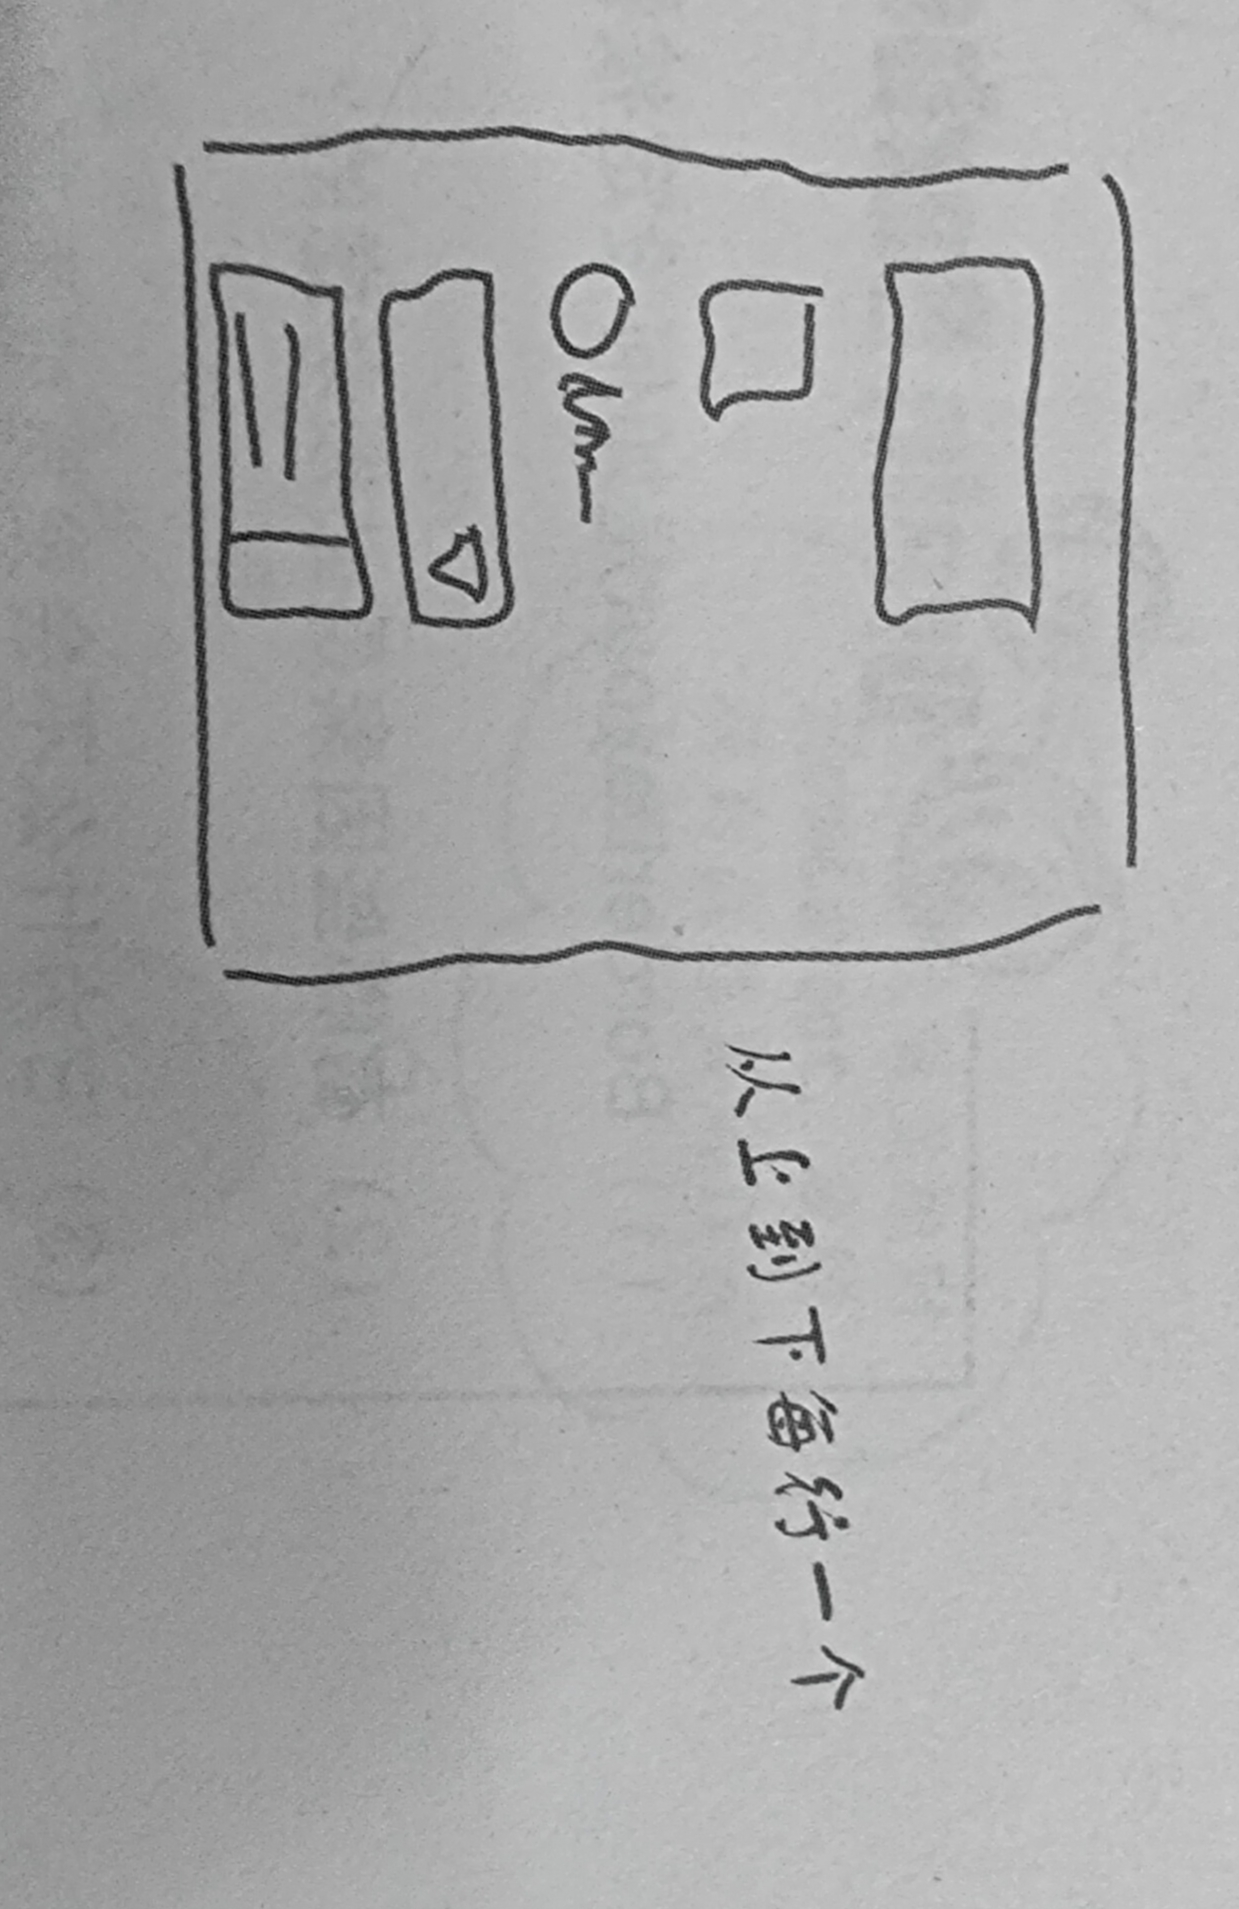 从上到下每行一个